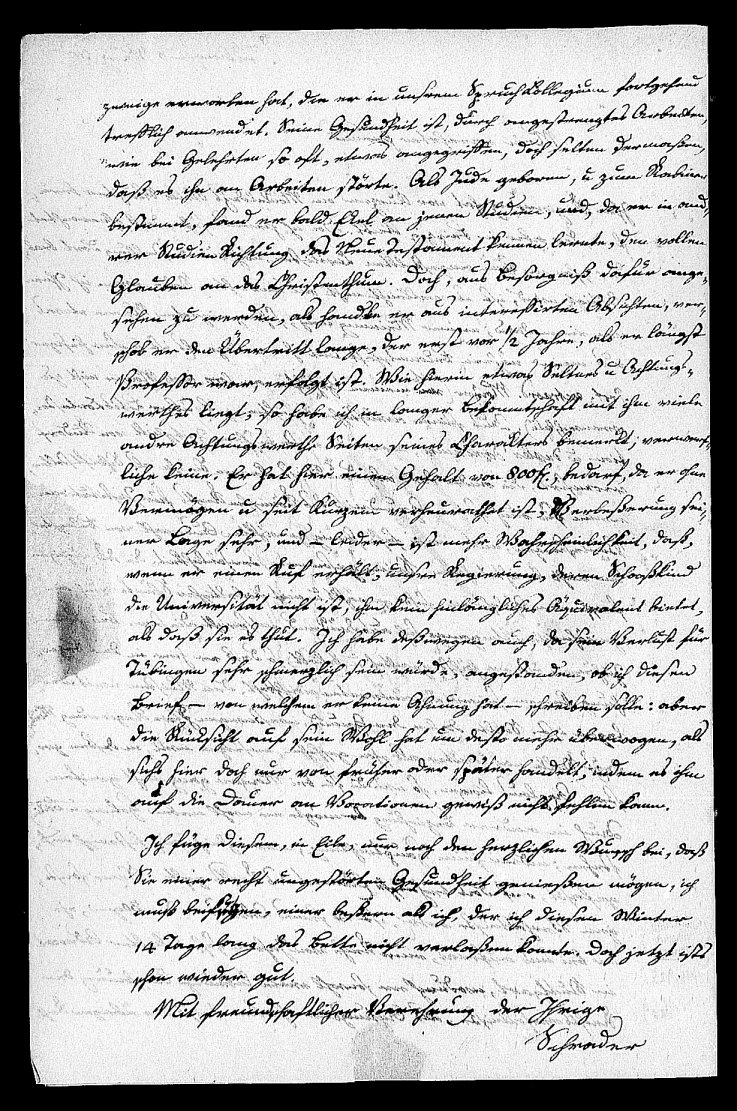 zweige erworben hat, die er in unsrem Spruch Collegium fortgesezt
trefflich anwendet. Seine Gesundheit ist, durch angestrengtes Arbeiten,
wie bei Gelehrten so oft, etwas angegriffen, doch selten dermaßen,
daß es ihn am Arbeiten störte. Als Jude geboren, u zum Rabiner
bestimmt, fand er bald Ekel an jenen Studien, und, da er in and-
rer Studien Richtung das Neue Testament kennen lernte, den vollen
Glauben an das Christenthum. Doch, aus Besorgniß dafür ange-
sehen zu werden, als handle er aus interessirten Absichten, ver-
schob er den Übertritt lange, der erst vor 1/2 Jahre, als er längst
Professor war, erfolgt ist. Wie hierin etwas Seltnes u Achtungs-
werthes liegt, so habe ich in langer Bekanntschaft mit ihm viele
andre Achtungswerthe Seiten seines Charakters bemerkt, verwerf-
liche keine. Er hat hier einen Gehalt von 800 f., bedarf, da er ohne
Vermögen u seit Kurzem verheurathet ist, Verbeßerung sei-
ner Lage sehr, und – leider – ist mehr Wahrscheinlichkeit, daß,
wenn er einen Ruf erhält, unsre Regierung, deren Schooßkind
die Universität nicht ist, ihm kein hinlängliches Äquivalent bietet,
als daß sie es thut. Ich habe deßwegen auch, da sein Verlust für
Tübingen sehr schmerzlich sein würde, angestanden, ob ich diesen
Brief – von welchem er keine Ahnung hat – schreiben solle: aber
die Rüksicht auf sein Wohl hat um desto mehr überwogen, als
sichs hier doch nur von früher oder später handelt, indem es ihm
auf die Dauer an Vocationen gewiß nicht fehlen kann.
Ich füge diesem, in Eile, nur noch den herzlichen Wunsch bei, daß
Sie einer recht ungestörten Gesundheit genießen mögen, ich
muß beifügen, einer beßern als ich, der ich diesen Winter
14 Tage lang das Bette nicht verlaßen konnte. Doch jetzt ists
schon wieder gut.
Mit freundschaftlicher Verehrung der Ihrige
Schrader